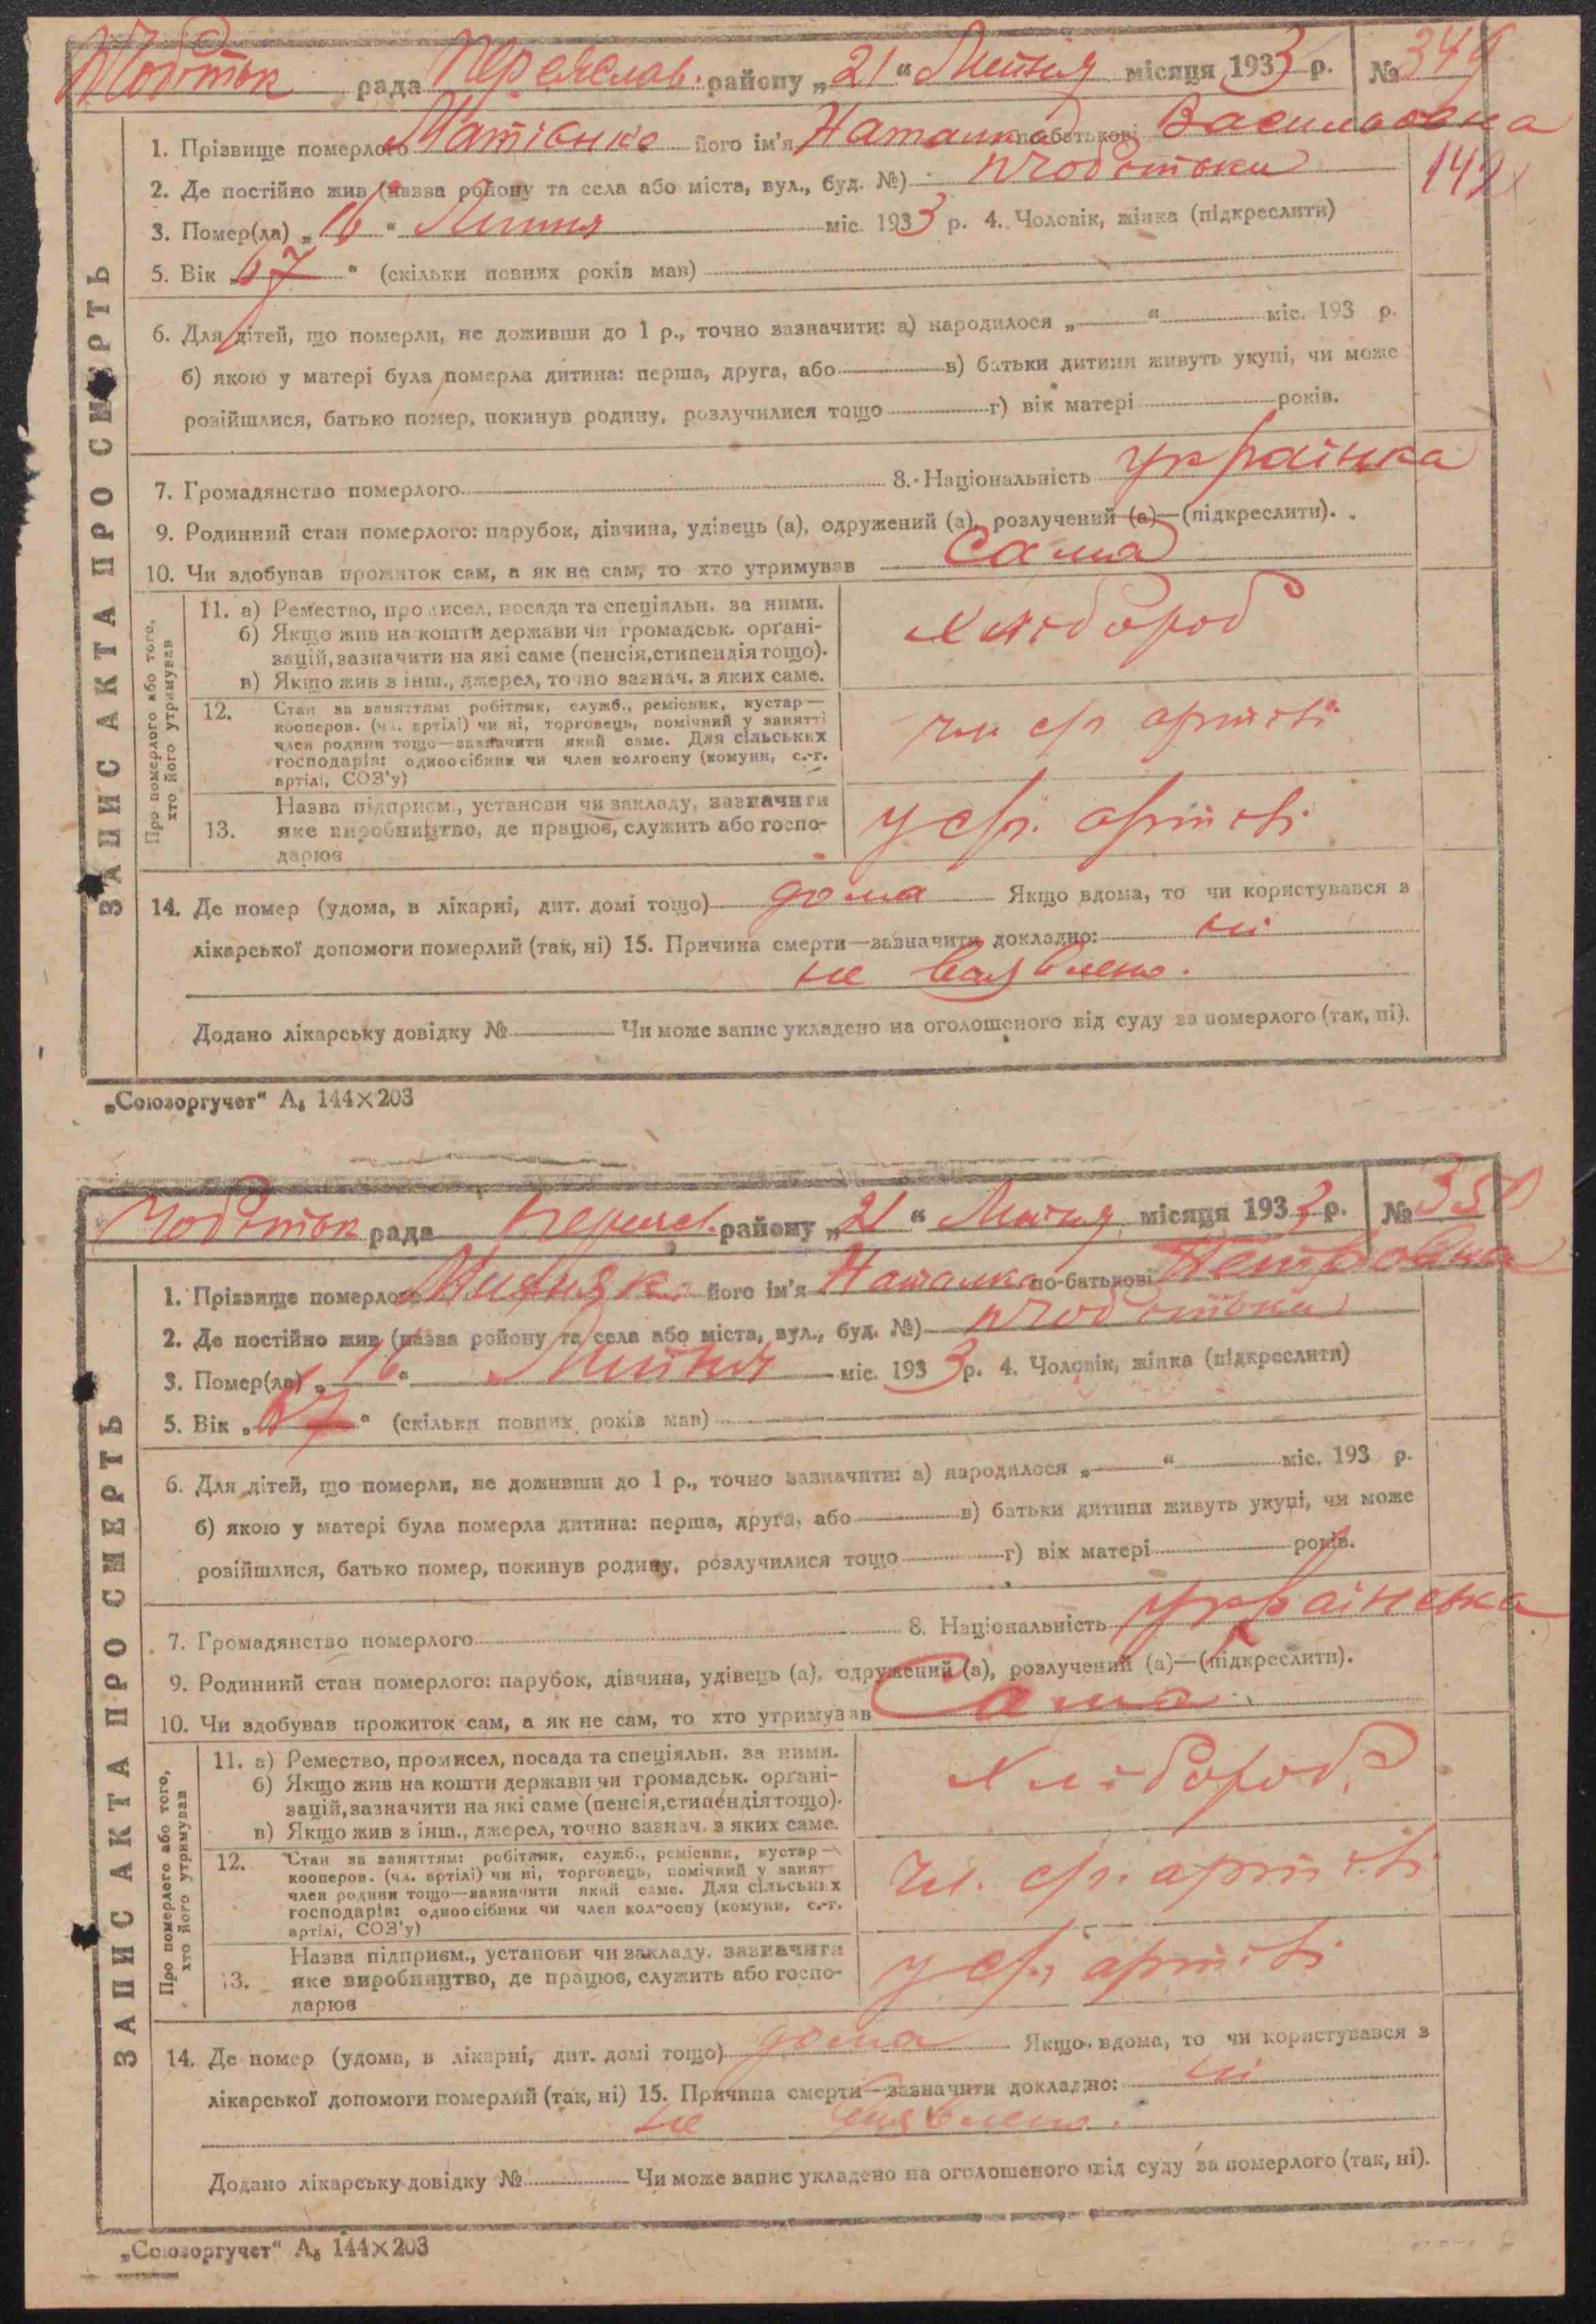 рада Переяслав. району „21“ Липня місяця 1933 р. № 349
1. Прізвище померлого його ім'я Наталка по-батькові Василовна
142
2. Де постійно жив (назва ройону та села або міста, вул., буд. №)
3. Помер(ла) „16“ Липня міс. 1933 р. 4. Чоловік, жінка (підкреслити)
5. Вік „67“ (скільки повних років мав)
6. Для дітей, що померли, не доживши до 1 р., точно зазначити: а) народилося „ “ міс. 193 р.
б) якою у матері була померла дитина: перша, друга, або в) батьки дитини живуть укупі, чи може
розійшлися, батько помер, покинув родину, розлучилися тощо г) вік матері років.
7. Громадянство померлого 8. Національність українка
9. Родинний стан померлого: парубок, дівчина, удівець (а), одружений (а), розлучений (а)—(підкреслити).
10. Чи здобував прожиток сам, а як не сам, то хто утримував Сама
ЗАПИС АКТА ПРО СМЕРТЬ
Про померлого або того, хто його утримував
11. а) Ремество, промисел, посада та спеціяльн. за ними.
б) Якщо жив на кошти держави чи громадськ. орґані-
зацій, зазначити на які саме (пенсія, стипендія тощо).
в) Якщо жив з інш., джерел, точно зазнач. з яких саме.
хлібороб
12. Стан за заняттям: робітник, служб., ремісник, кустар—
кооперов. (чл. артілі) чи ні, торговець, помічний у занятті
член родини тощо—зазначити який саме. Для сільських
господарів: одноосібник чи член колгоспу (комуни, с.-г.
артілі, СОЗ'у)
чл ср. артілі
13. Назва підприєм., установи чи закладу, зазначити
яке виробництво, де працює, служить або госпо-
дарює
у ср. артілі
14. Де помер (удома, в лікарні, дит. домі тощо) дома Якщо вдома, то чи користувався з
лікарської допомоги померлий (так, ні) 15. Причина смерти—зазначити докладно: ні
не виявлено.
Додано лікарську довідку № Чи може запис укладено на оголошеного від суду за померлого (так, ні).
„Союзоргучет“ А₅ 144×203
рада Переясл. району „21“ Липня місяця 1933 р. № 350
1. Прізвище померлого його ім'я Наталка по-батькові Петровна
2. Де постійно жив (назва ройону та села або міста, вул., буд. №)
3. Помер(ла) „16“ Липня міс. 1933 р. 4. Чоловік, жінка (підкреслити)
5. Вік „67“ (скільки повних років мав)
6. Для дітей, що померли, не доживши до 1 р., точно зазначити: а) народилося „ “ міс. 193 р.
б) якою у матері була померла дитина: перша, друга, або в) батьки дитини живуть укупі, чи може
розійшлися, батько помер, покинув родину, розлучилися тощо г) вік матері років.
7. Громадянство померлого 8. Національність українська
9. Родинний стан померлого: парубок, дівчина, удівець (а), одружений (а), розлучений (а)—(підкреслити).
10. Чи здобував прожиток сам, а як не сам, то хто утримував Сама
ЗАПИС АКТА ПРО СМЕРТЬ
Про померлого або того, хто його утримував
11. а) Ремество, промисел, посада та спеціяльн. за ними.
б) Якщо жив на кошти держави чи громадськ. орґані-
зацій, зазначити на які саме (пенсія, стипендія тощо).
в) Якщо жив з інш., джерел, точно зазнач. з яких саме.
хлібороб
12. Стан за заняттям: робітник, служб., ремісник, кустар—
кооперов. (чл. артілі) чи ні, торговець, помічний у занят
член родини тощо—зазначити який саме. Для сільських
господарів: одноосібник чи член колгоспу (комуни, с.-г.
артілі, СОЗ'у)
чл. ср. артілі
13. Назва підприєм., установи чи закладу, зазначити
яке виробництво, де працює, служить або госпо-
дарює
у ср. артілі
14. Де помер (удома, в лікарні, дит. домі тощо) дома Якщо вдома, то чи користувався з
лікарської допомоги померлий (так, ні) 15. Причина смерти—зазначити докладно: ні
не виявлено.
Додано лікарську довідку № Чи може запис укладено на оголошеного від суду за померлого (так, ні).
„Союзоргучет“ А₅ 144×203